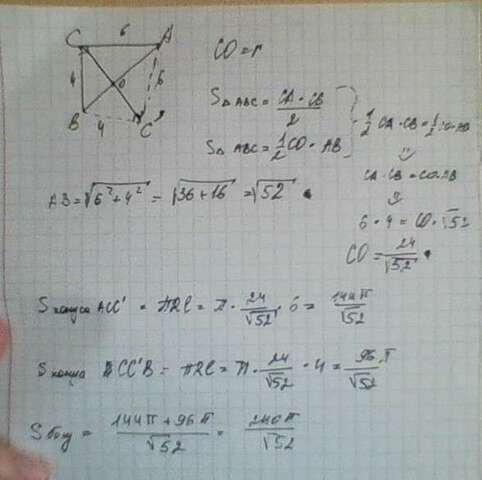 C 6 A
CO = r
4 O 6
B 4 C'
S△ABC = CA · CB / 2
S△ABC = 1/2 CO · AB
1/2 CA · CB = 1/2 CO · AB
CA · CB = CO · AB
6 · 4 = CO · √52
CO = 24/√52
AB = √6²+4² = √36+16 = √52
S конуса ACC' = πRl = π · 24/√52 · 6 = 144π/√52
S конуса BCC'B = πRl = π · 24/√52 · 4 = 96π/√52
S = 144π + 96π / √52 = 240π/√52